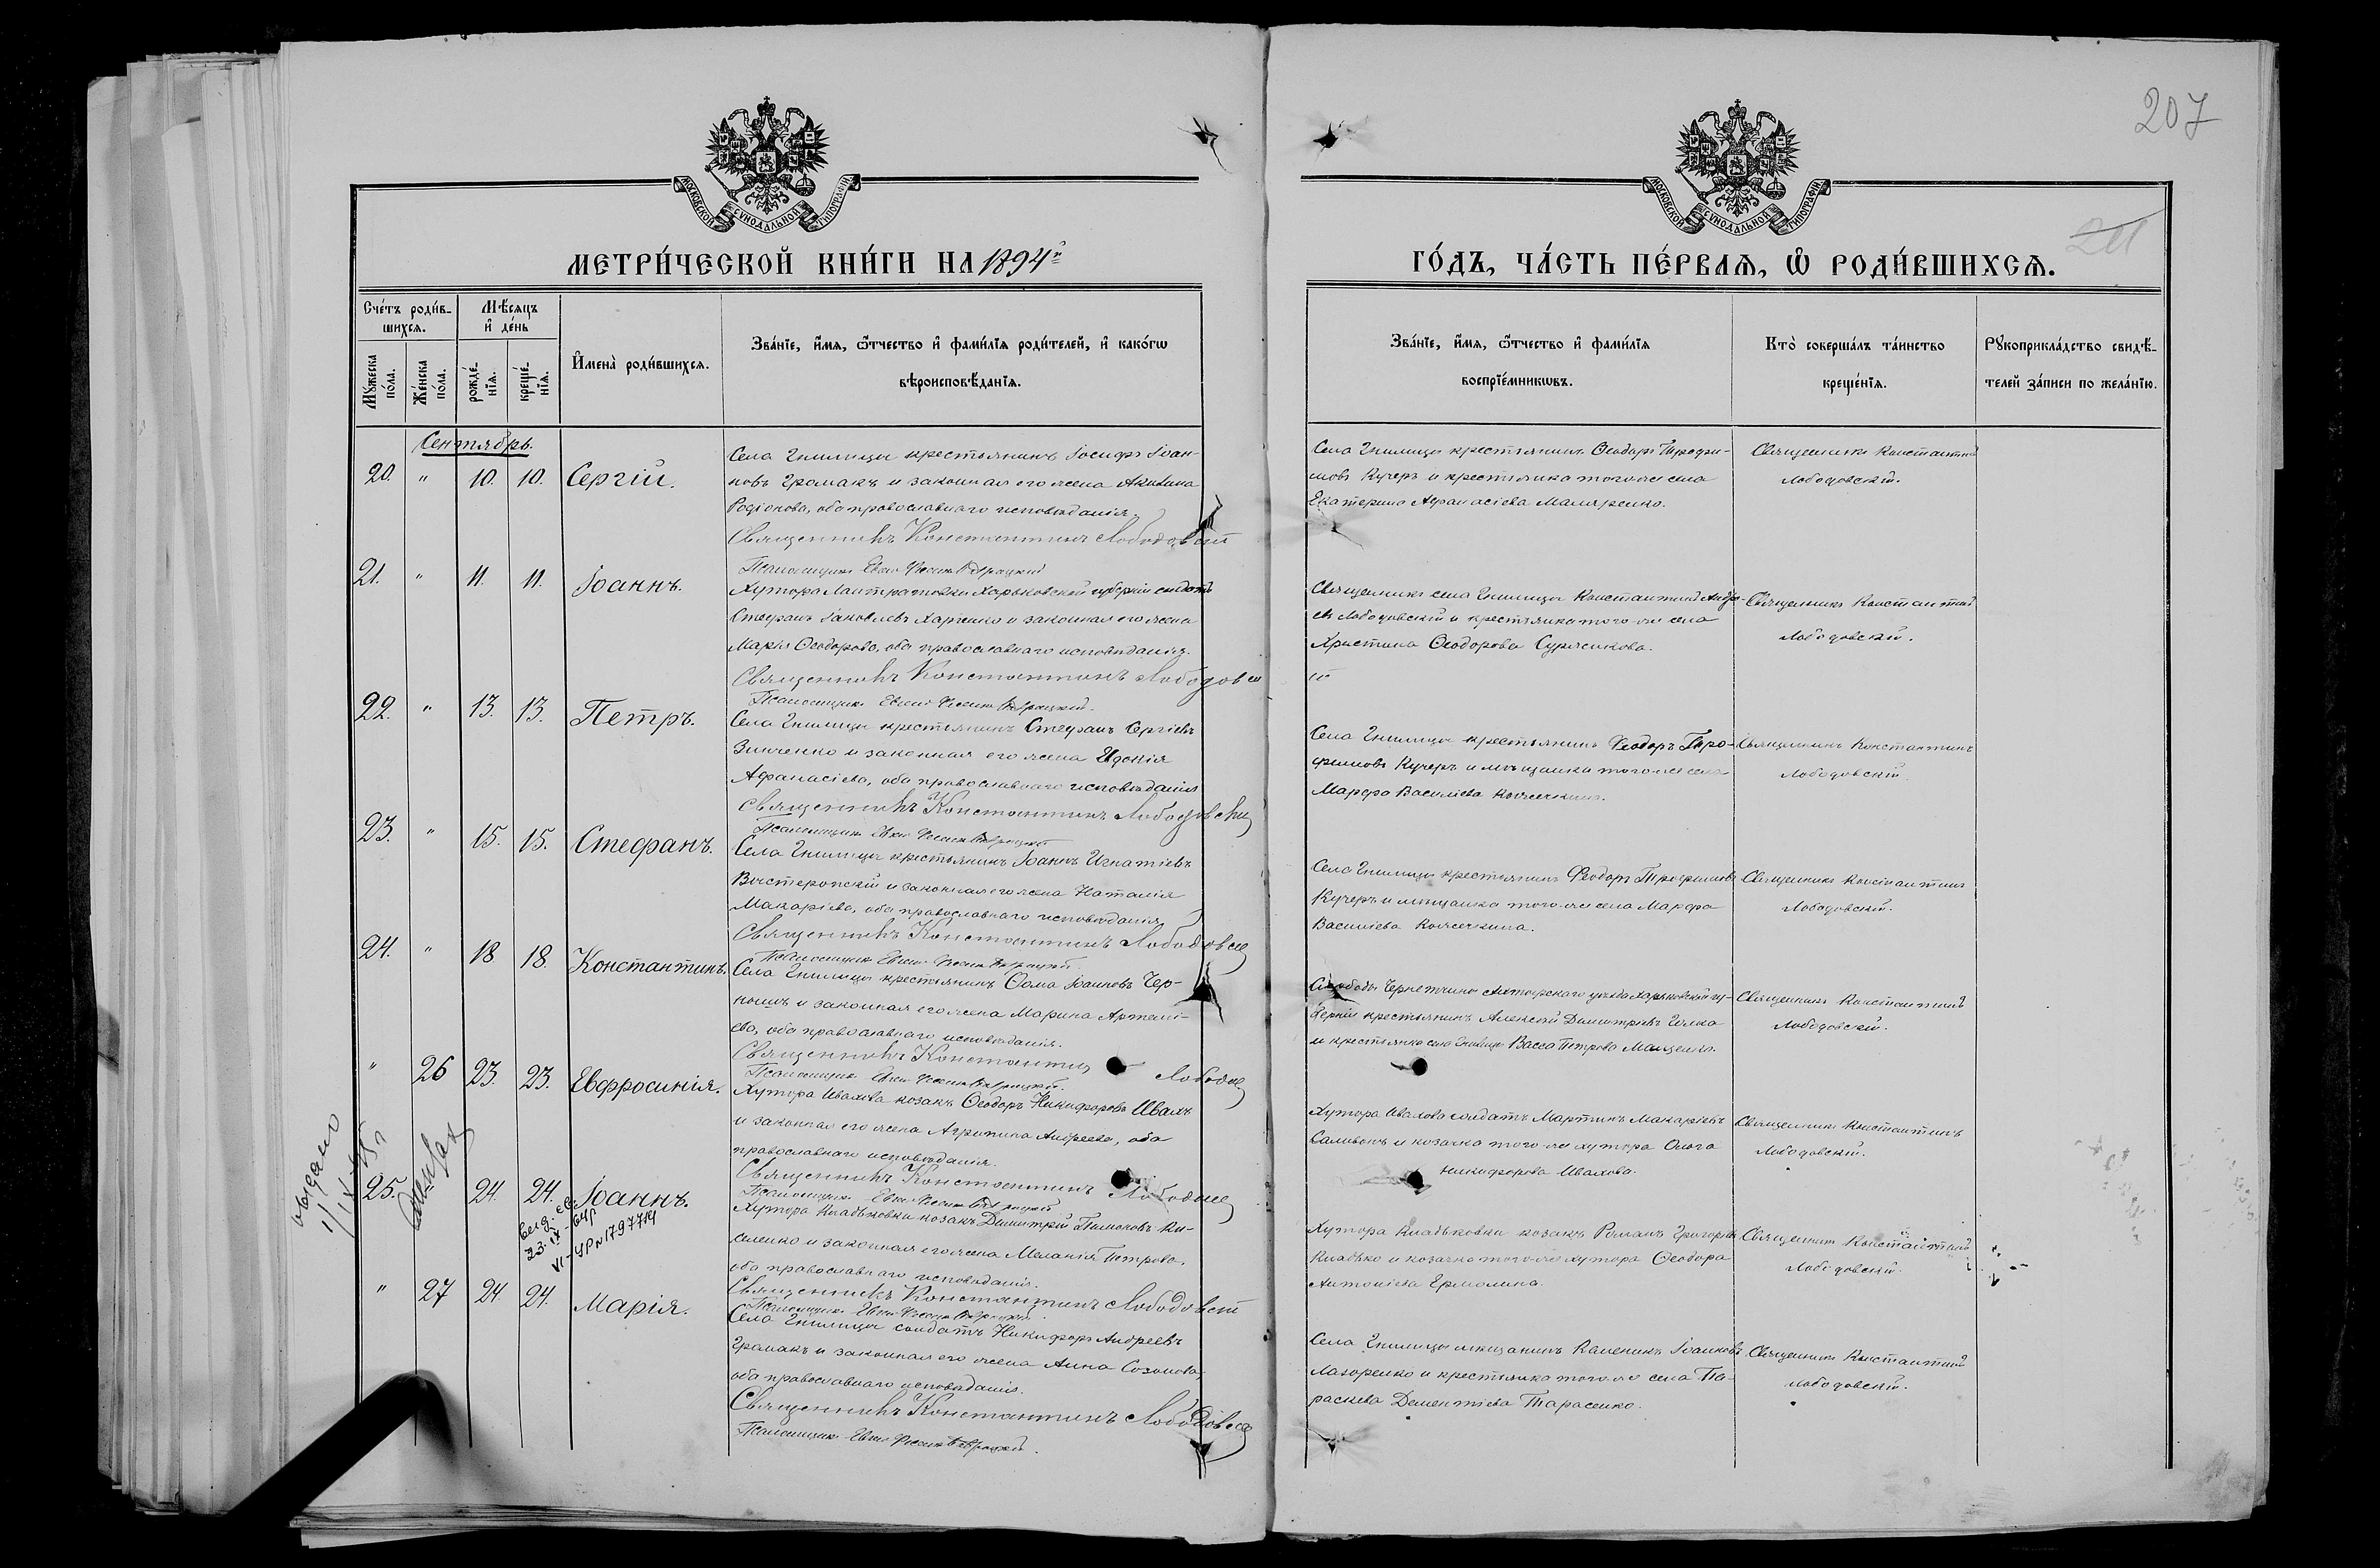 207
211
МОСКОВСКОЙ СѴНОДАЛЬНОЙ ТИПОГРАФІИ
МОСКОВСКОЙ СѴНОДАЛЬНОЙ ТИПОГРАФІИ
МЕТРИ́ЧЕСКОЙ КНИ́ГИ НА 1894й
ГО́ДЪ, ЧА́СТЬ ПЕ́РВАѦ, Ѡ РОДИ́ВШИХСѦ.
Сче́тъ роди́в-
шихсѧ.
Мѣ́сѧцъ
и҆ де́нь
Мꙋ́жеска
по́ла.
Же́нска
по́ла.
рожде́-
нїѧ.
креще́-
нїѧ.
И҆мена̀ роди́вшихсѧ.
Зва́нїе, и҆́мѧ, ѻ҆́тчество и҆ фами́лїѧ роди́телей, и҆ како́гѡ
вѣроисповѣ́данїѧ.
Зва́нїе, и҆́мѧ, ѻ҆́тчество и҆ фами́лїѧ
воспрїе́мникѡвъ.
Кто̀ соверша́лъ та́инство
креще́нїѧ.
Рꙋкоприкла́дство свидѣ́-
телей за́писи по жела́нїю.
Сентябрь.
20. " 10. 10. Сергій.
Села Гнилицы крестьянинъ Іосифъ Іоан-
новъ Грамакъ и законная его жена Акилина
Родіонова, оба православнаго исповѣданія.
Священникъ Константинъ Лободовскій
Псаломщикъ
Села Гнилицы крестьянинъ Ѳеодоръ Трофи-
мовъ Кучеръ и крестьянка того же села
Екатерина Аѳанасіева Маляренко.
Священникъ Константинъ
Лободовскій.
21. " 11. 11. Іоаннъ.
Хутора Харьковской губерніи солдатъ
Стефанъ Іаковлевъ Харченко и законная его жена
Марія Ѳеодорова, оба православнаго исповѣданія.
Священникъ Константинъ Лободовскій
Псаломщикъ
Священникъ села Гнилицы Константинъ Андре-
евъ Лободовскій и крестьянка того же села
Христина Ѳеодорова
Священникъ Константинъ
Лободовскій.
22. " 13. 13. Петръ.
Села Гнилицы крестьянинъ Стефанъ Сергіевъ
Зинченко и законная его жена Евдокія
Аѳанасіева, оба православнаго исповѣданія
Священникъ Константинъ Лободовскій
Псаломщикъ
Села Гнилицы крестьянинъ Ѳеодоръ Тро-
фимовъ Кучеръ и мѣщанка того же села
Марфа Василіева
Священникъ Константинъ
Лободовскій.
23. " 15. 15. Стефанъ.
Села Гнилицы крестьянинъ Іоаннъ Игнатіевъ
и законная его жена Наталія
Макаріева, оба православнаго исповѣданія
Священникъ Константинъ Лободовскій
Псаломщикъ
Села Гнилицы крестьянинъ Ѳеодоръ Трофимовъ
Кучеръ и мѣщанка того же села Марфа
Василіева
Священникъ Константинъ
Лободовскій.
24. " 18 18. Константинъ.
Села Гнилицы крестьянинъ Ѳома Іоанновъ Чер-
нышъ и законная его жена Марина Артемі-
ева, оба православнаго исповѣданія.
Священникъ Константинъ Лободовскій
Псаломщикъ
Слободы Ахтырскаго уѣзда Харьковской гу-
берніи крестьянинъ Алексѣй Димитріевъ
и крестьянка села Гнилицы Васса Петрова
Священникъ Константинъ
Лободовскій.
" 26 23. 23. Евфросинія.
Хутора Ивахова козакъ Ѳеодоръ Никифоровъ Ивахъ
и законная его жена Агрипина Андреева, оба
православнаго исповѣданія.
Священникъ Константинъ Лободовскій
Псаломщикъ
Хутора Ивахова солдатъ Мартинъ Макаріевъ
и козачка того же хутора Ольга
Никифорова Ивахова.
Священникъ Константинъ
Лободовскій.
25. 24. 24. Іоаннъ.
выдано
Хутора козакъ Димитрій Ки-
ленко и законная его жена Меланія Петрова,
оба православнаго исповѣданія.
Священникъ Константинъ Лободовскій
Псаломщикъ
Хутора козакъ Романъ Григоріевъ
и козачка того же хутора Ѳеодора
Антоніева Ермолина.
Священникъ Константинъ
Лободовскій.
" 27 24. 24. Марія.
Села Гнилицы солдатъ Никифоръ Андреевъ
Грамакъ и законная его жена Анна Созонова,
оба православнаго исповѣданія.
Священникъ Константинъ Лободовскій
Псаломщикъ
Села Гнилицы мѣщанинъ Каленикъ Іоанновъ
Лазоренко и крестьянка того же села Па-
раскева Дементіева Тарасенко.
Священникъ Константинъ
Лободовскій.